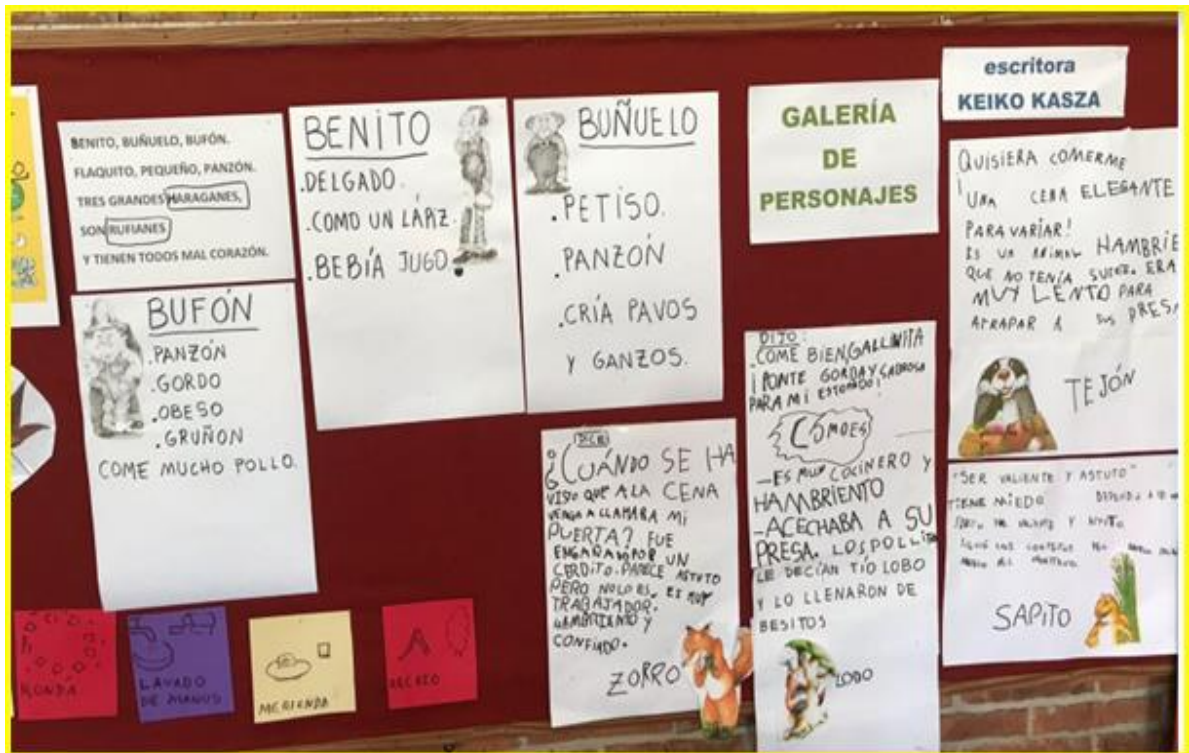 BENITO, BUÑUELO, BUFÓN.
FLAQUITO, PEQUEÑO, PANZÓN.
TRES GRANDES HARAGANES,
SON RUFIANES
Y TIENEN TODOS MAL CORAZÓN.
BENITO
.DELGADO.
.COMO UN LÁPIZ.
.BEBÍA JUGO.
BUÑUELO
.PETISO.
.PANZÓN
.CRÍA PAVOS
Y GANZOS.
GALERÍA
DE
PERSONAJES
escritora
KEIKO KASZA
BUFÓN
.PANZÓN
.GORDO
.OBESO
.GRUÑON
COME MUCHO POLLO.
QUISIERA COMERME
¡UNA CENA ELEGANTE
PARA VARIAR!
ES UN ANIMAL HAMBRIE
QUE NO TENÍA SUERTE. ERA
MUY LENTO PARA
ATRAPAR A SUS PRESA
TEJÓN
DICE
¿CUÁNDO SE HA
VISTO QUE A LA CENA
VENGA A LLAMAR A MI
PUERTA? FUE
ENGAÑADO POR UN
CERDITO. PARECE ASTUTO
PERO NO LO ES. ES MUY
TRABAJADOR.
HAMBRIENTO Y
CONFIADO.
ZORRO
DIJO:
.COME BIEN, GALLINITA
¡PONTE GORDA Y SABROSA
PARA MI ESTOFADO!
CÓMO ES
-ES MUY COCINERO Y
HAMBRIENTO
-ACECHABA A SU
PRESA. LOS POLLITOS
LE DECÍAN TÍO LOBO
Y LO LLENARON DE
BESITOS
LOBO
"SER VALIENTE Y ASTUTO"
TIENE MIEDO
SAPITO
RONDA
LAVADO
DE MANOS
MERIENDA
RECREO